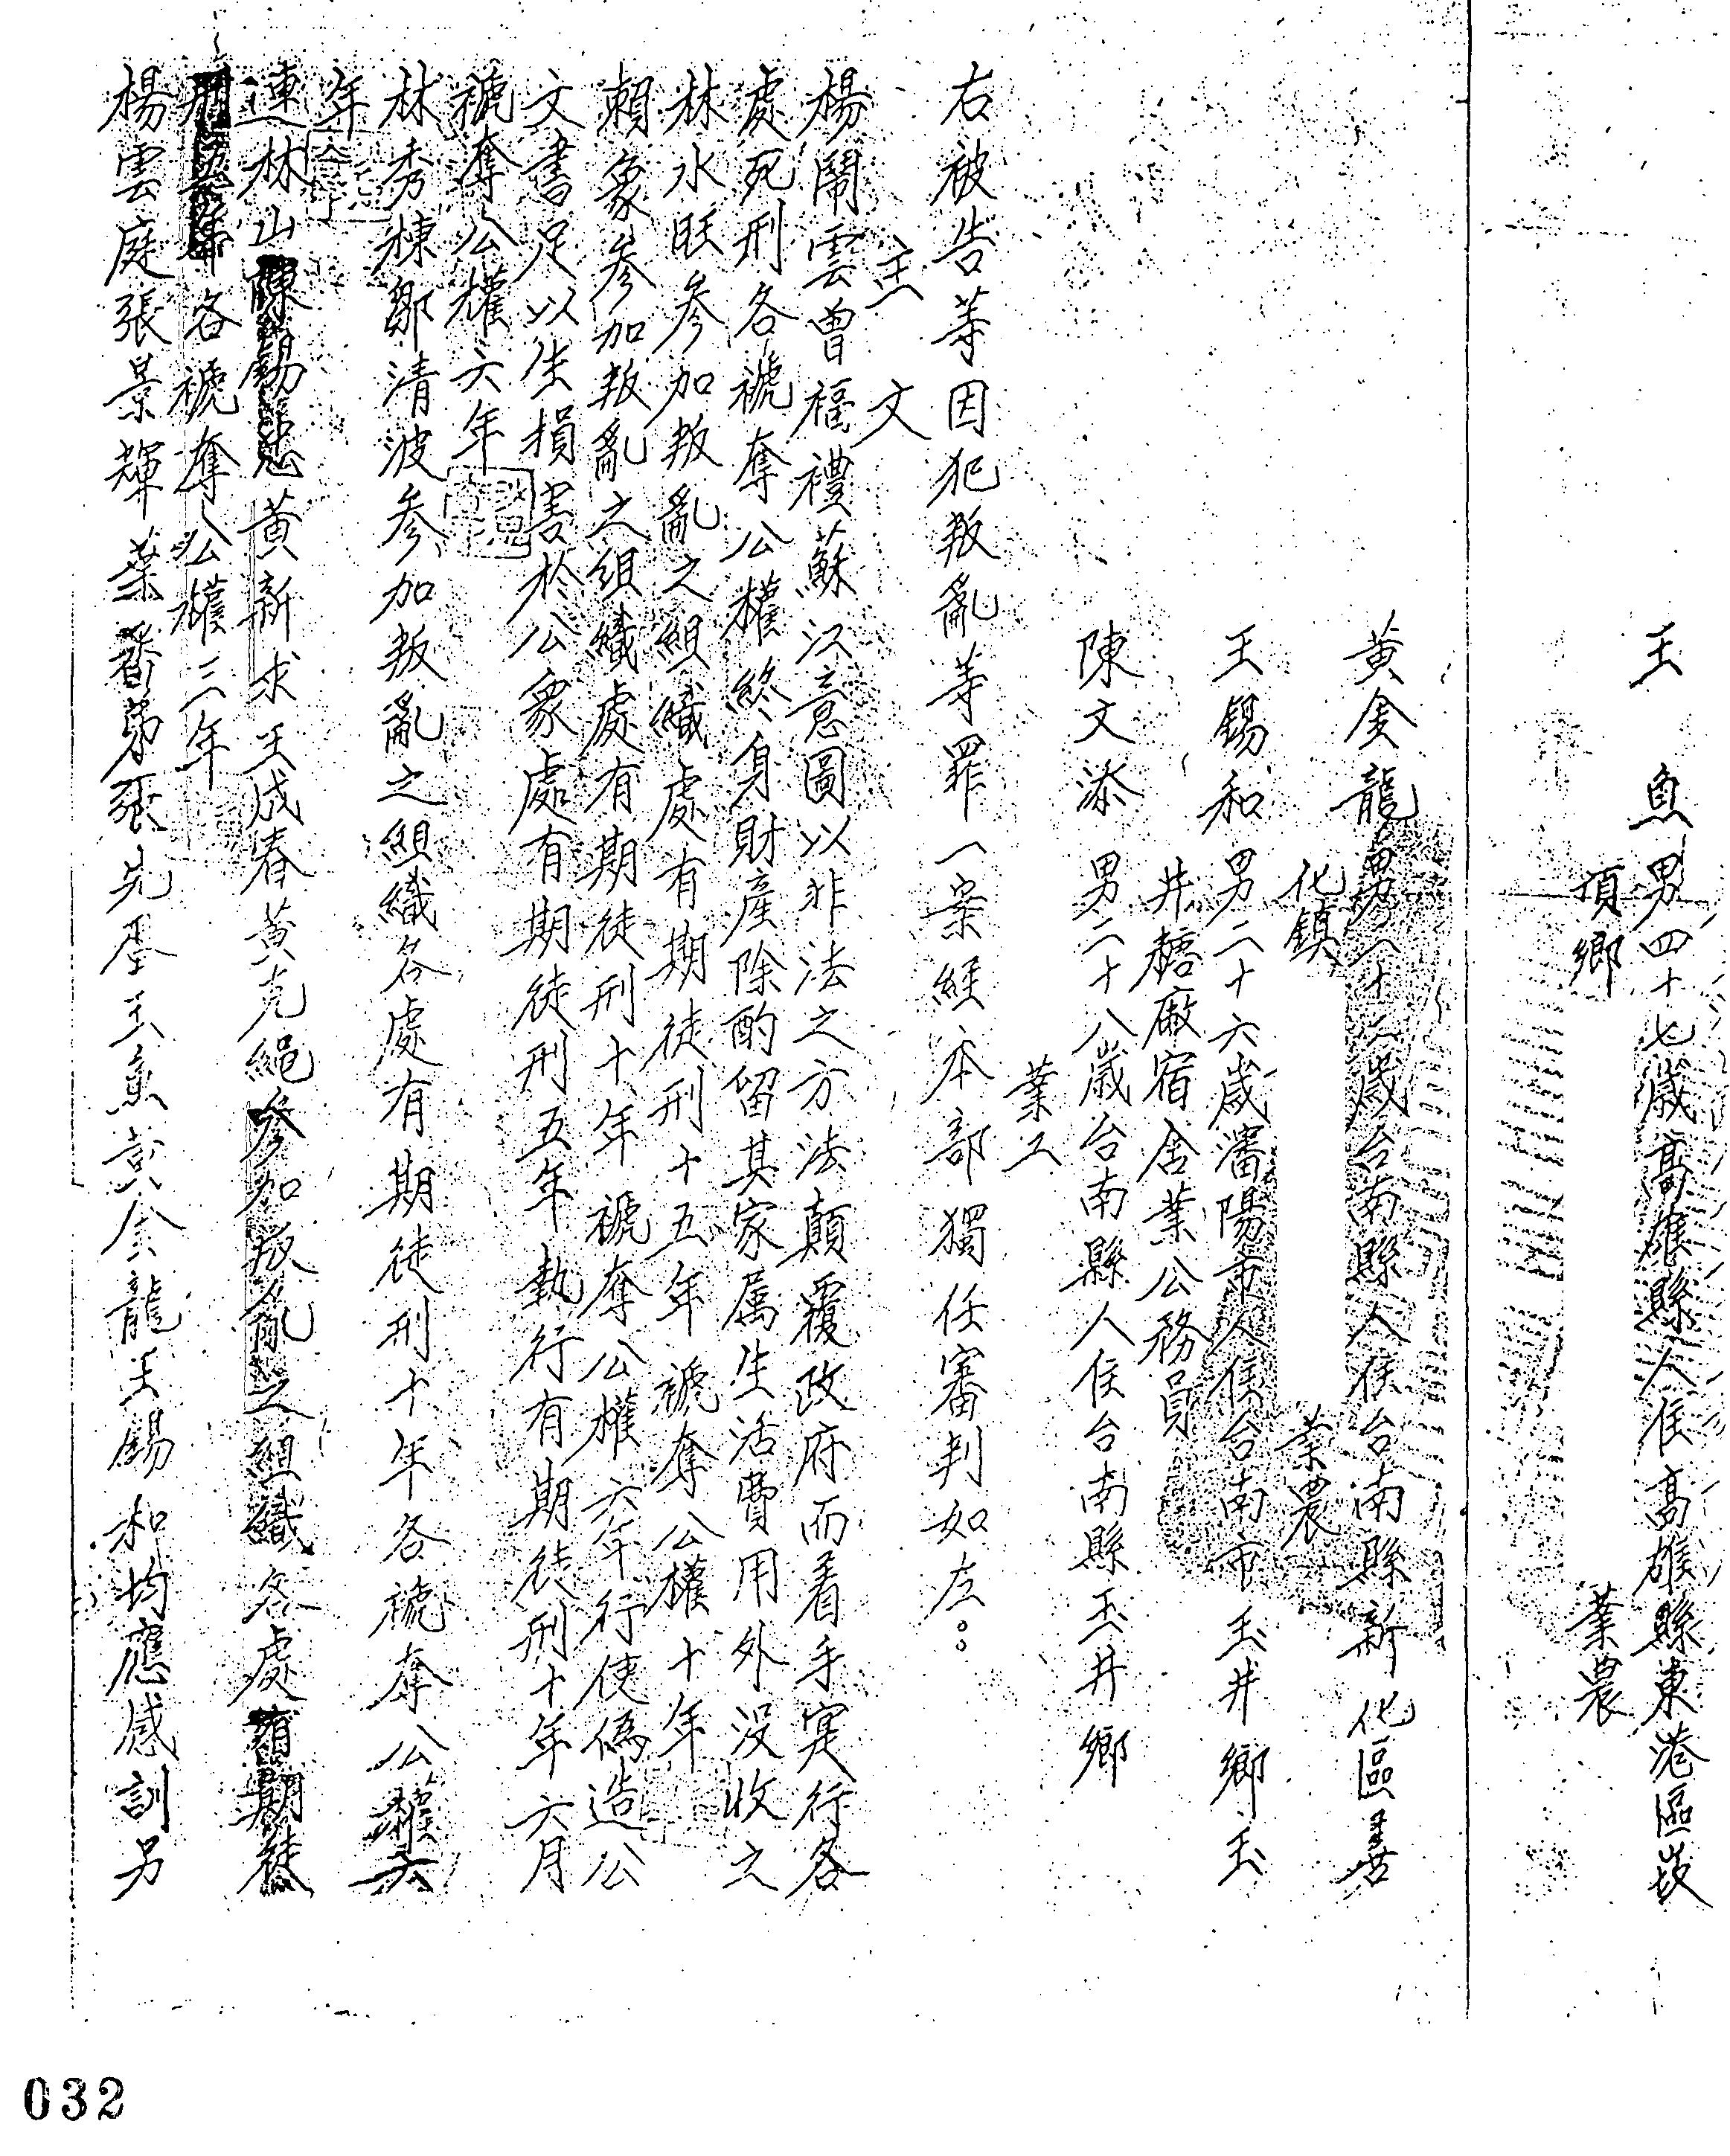 王魚男四十七歲高雄縣人住高雄縣東港區崁
頂鄉 業農
黃金龍男二十二歲台南縣人住台南縣新化區善
化鎮 業農
王錫和男二十六歲瀋陽市人住台南市玉井鄉玉
井糖廠宿舍業公務員
陳文添男二十八歲台南縣人住台南縣玉井鄉
業工
右被告等因犯叛亂等罪一案經本部獨任審判如左：
主文
楊鬧雲曾福禮蘇江意圖以非法之方法顛覆政府而着手实行各
處死刑各褫奪公權終身財產除酌留其家属生活費用外没收之
林水旺參加叛亂之組織處有期徒刑十五年褫奪公權十年
賴象參加叛亂之組織處有期徒刑十年褫奪公權六年行使偽造公
文書足以生損害於公衆處有期徒刑五年執行有期徒刑十年六月
褫奪公權六年
林秀棟鄒清波參加叛亂之組織各處有期徒刑十年各褫奪公權六
年
連林山陳錫忠黃新求王成春黃克繩參加叛亂之組織各處有期徒
刑五年各褫奪公權三年
楊雲庭張景輝葉番弟張先丞王魚黃金龍王錫和均應感訓另
032